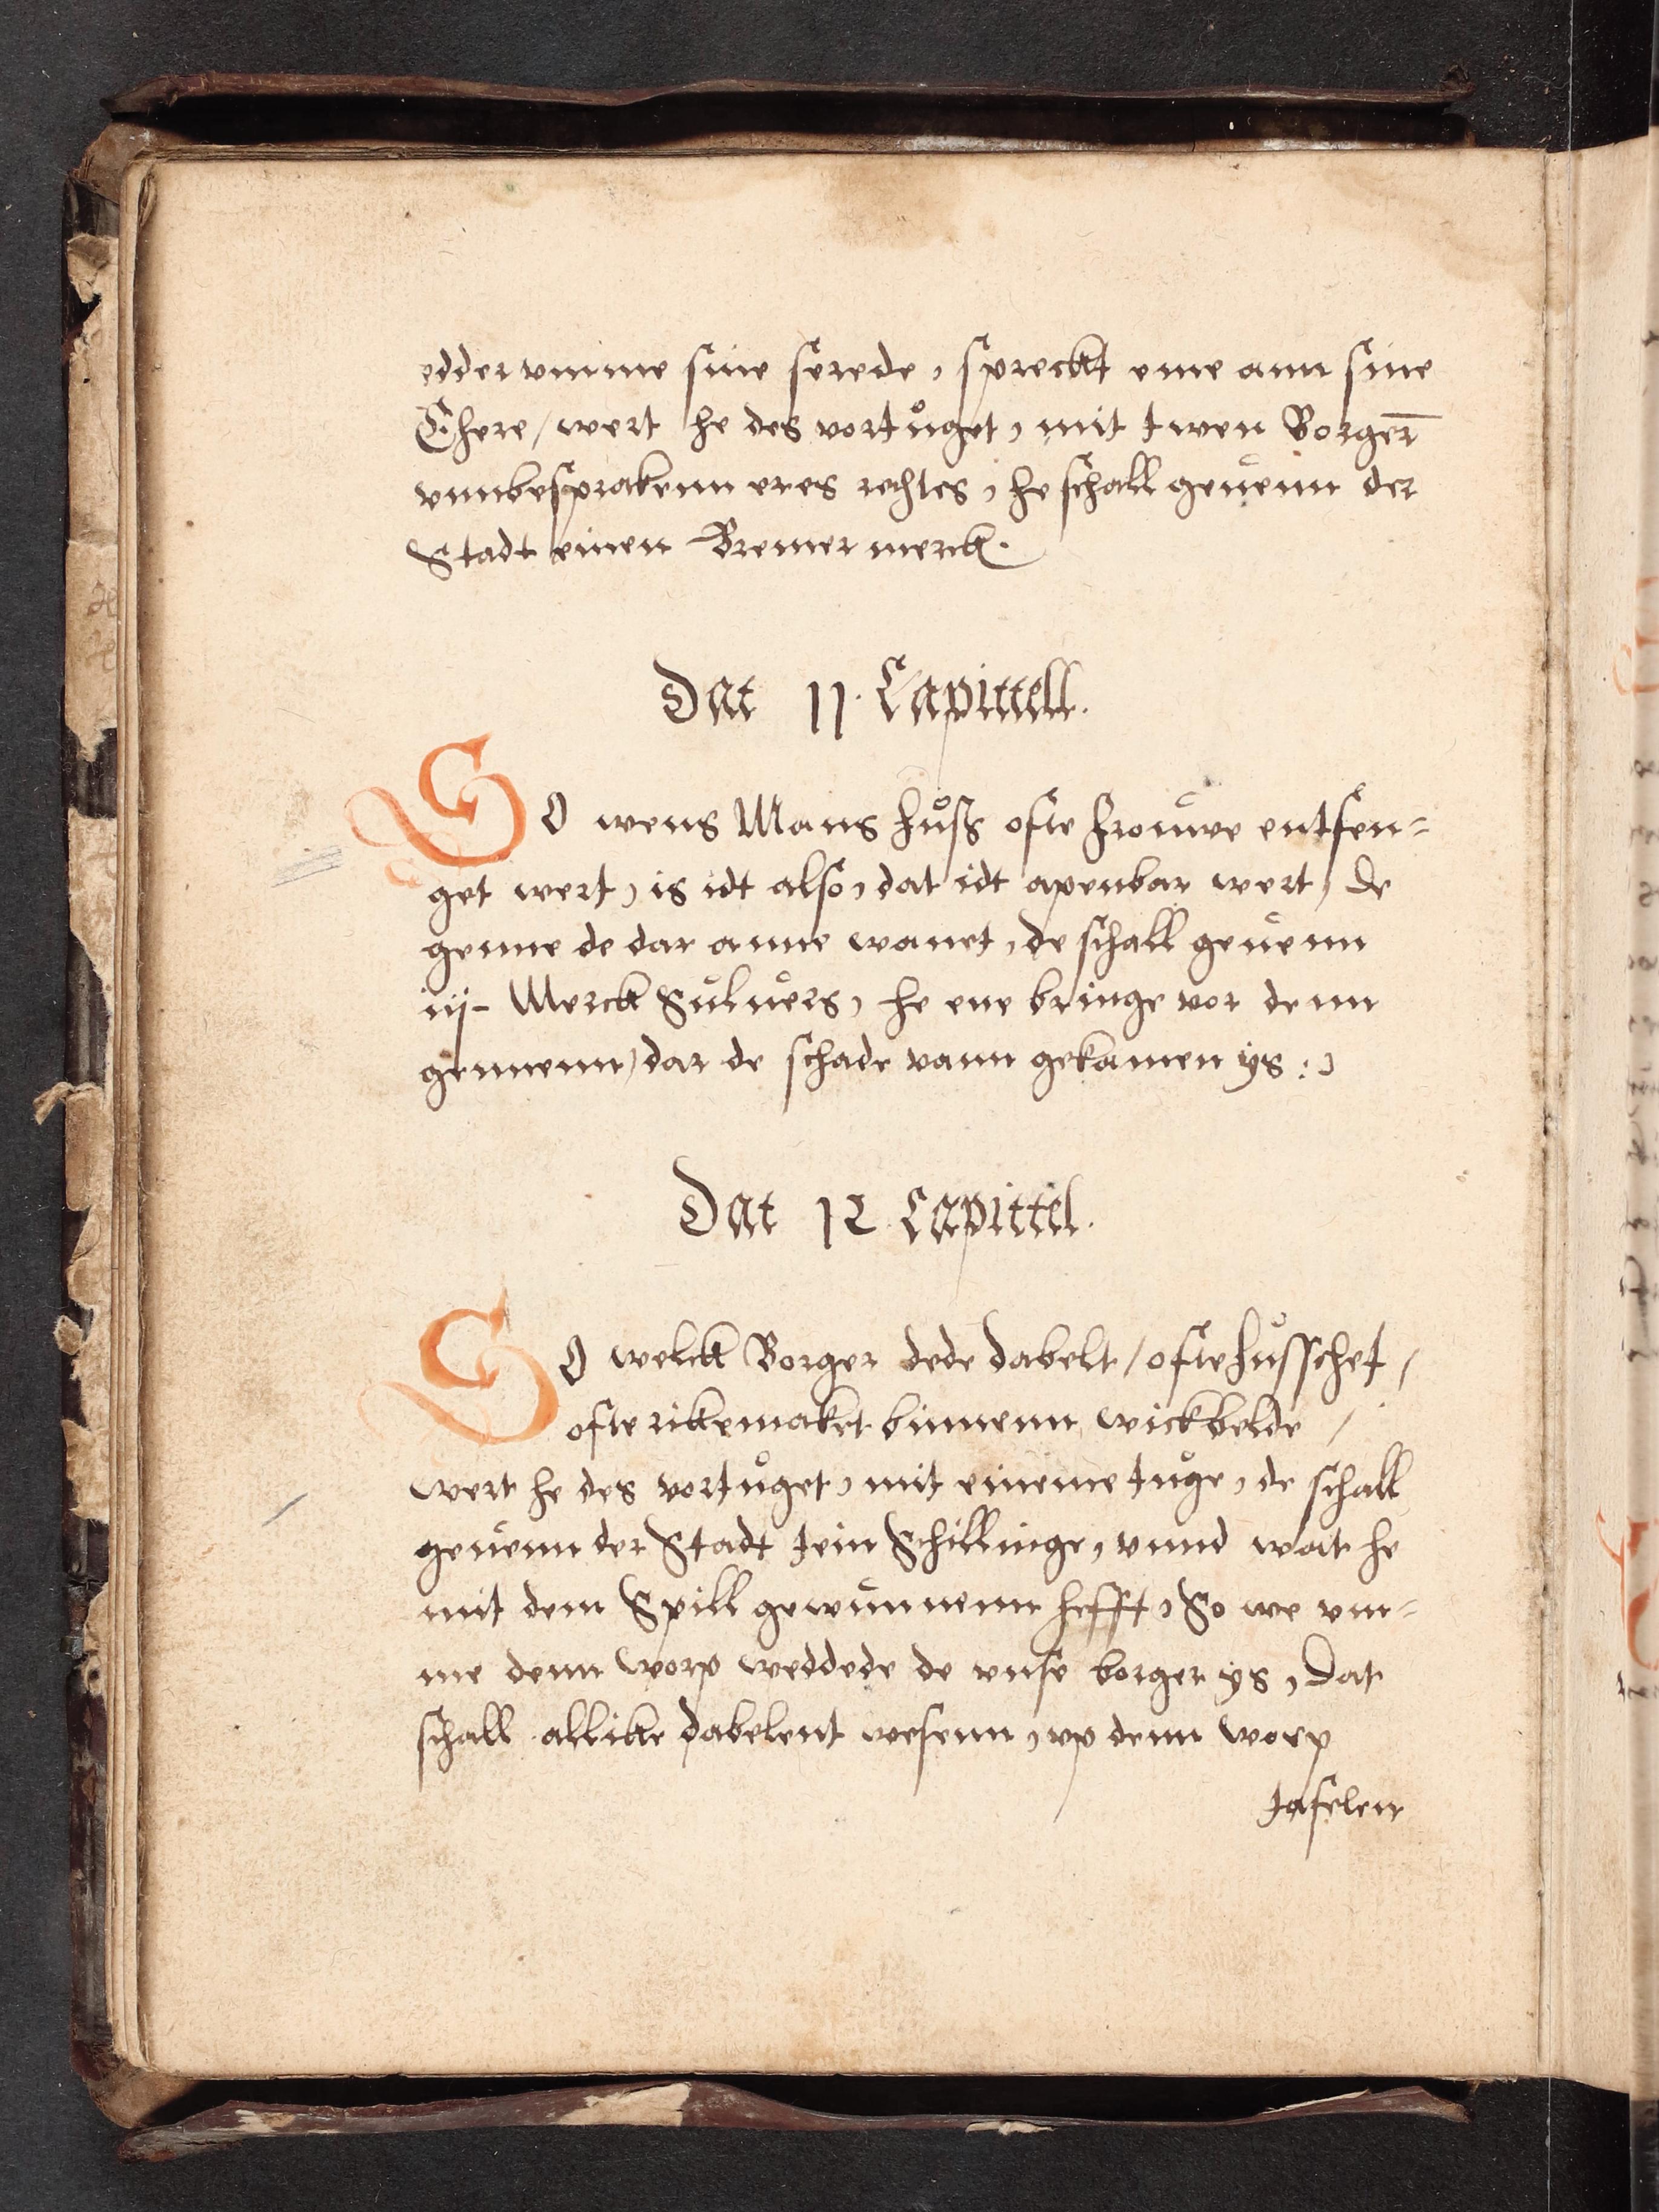 edder vmme sine serede, spreckt eme ann sine
Ehere / wert he des vortůget, mit twen Borger̄
vnnbesprakenn eres rechtes, he schall geuenn der
Stadt einen Bremer merck.
Dat 11. Capittell.
SO wens Mans hůß ofte Frouwe entfen=
get wert, is idt also, dat idt apenbar wert, de
genne de dar anne wanet, de schall geuenn
iij- Merck Suluers, he ene bringe vor denn
gennenn, dar de schade vann gekamen ys :,
Dat 12. Capittel.
SO welck Borger dede dabelt / ofte hůsschet /
ofte rikemaket binnenn wickbelde /
wert he des vortůget, mit eineme tůge, de schall
geuenn der Stadt tein Schillinge, vnnd wat he
mit dem Spill gewunnenn hefft, So we vm=
me denn worp weddede de vnse borger ys, Dat
schall allike dabelent wesenn, vp denn worp
tafelen